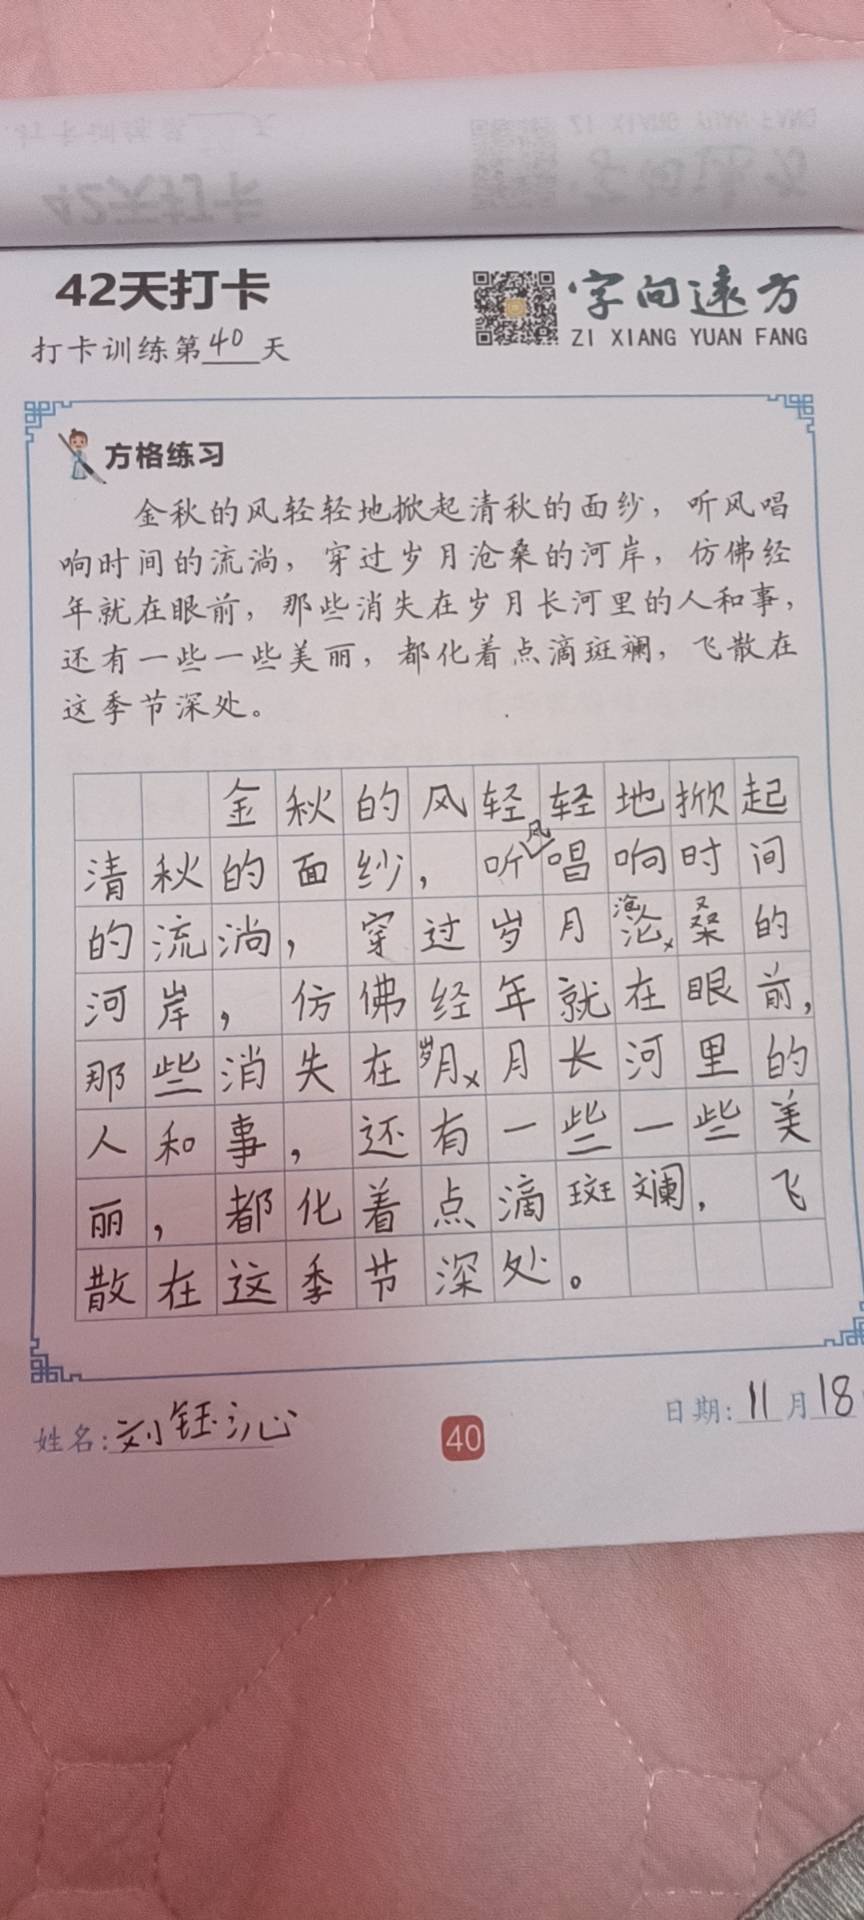 42天打卡
字向远方
ZI XIANG YUAN FANG
打卡训练第40天
方格练习
金秋的风轻轻地掀起清秋的面纱，听风唱
响时间的流淌，穿过岁月沧桑的河岸，仿佛经
年就在眼前，那些消失在岁月长河里的人和事，
还有一些一些美丽，都化着点滴斑斓，飞散在
这季节深处。
金秋的风轻轻地掀起
清秋的面纱，听风唱响时间
的流淌，穿过岁月沧沦x桑的
河岸，仿佛经年就在眼前，
那些消失在岁月x月长河里的
人和事，还有一些一些美
丽，都化着点滴斑斓，飞
散在这季节深处。
姓名：刘钰沁
40
日期：11月18